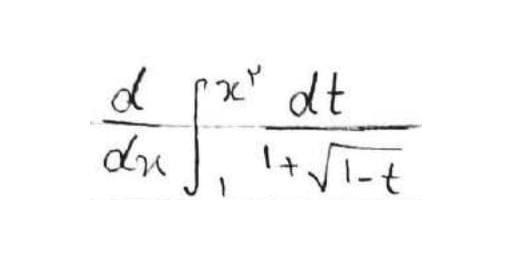 d/dx ∫₁^{x^۲} dt/(1+√(1-t))